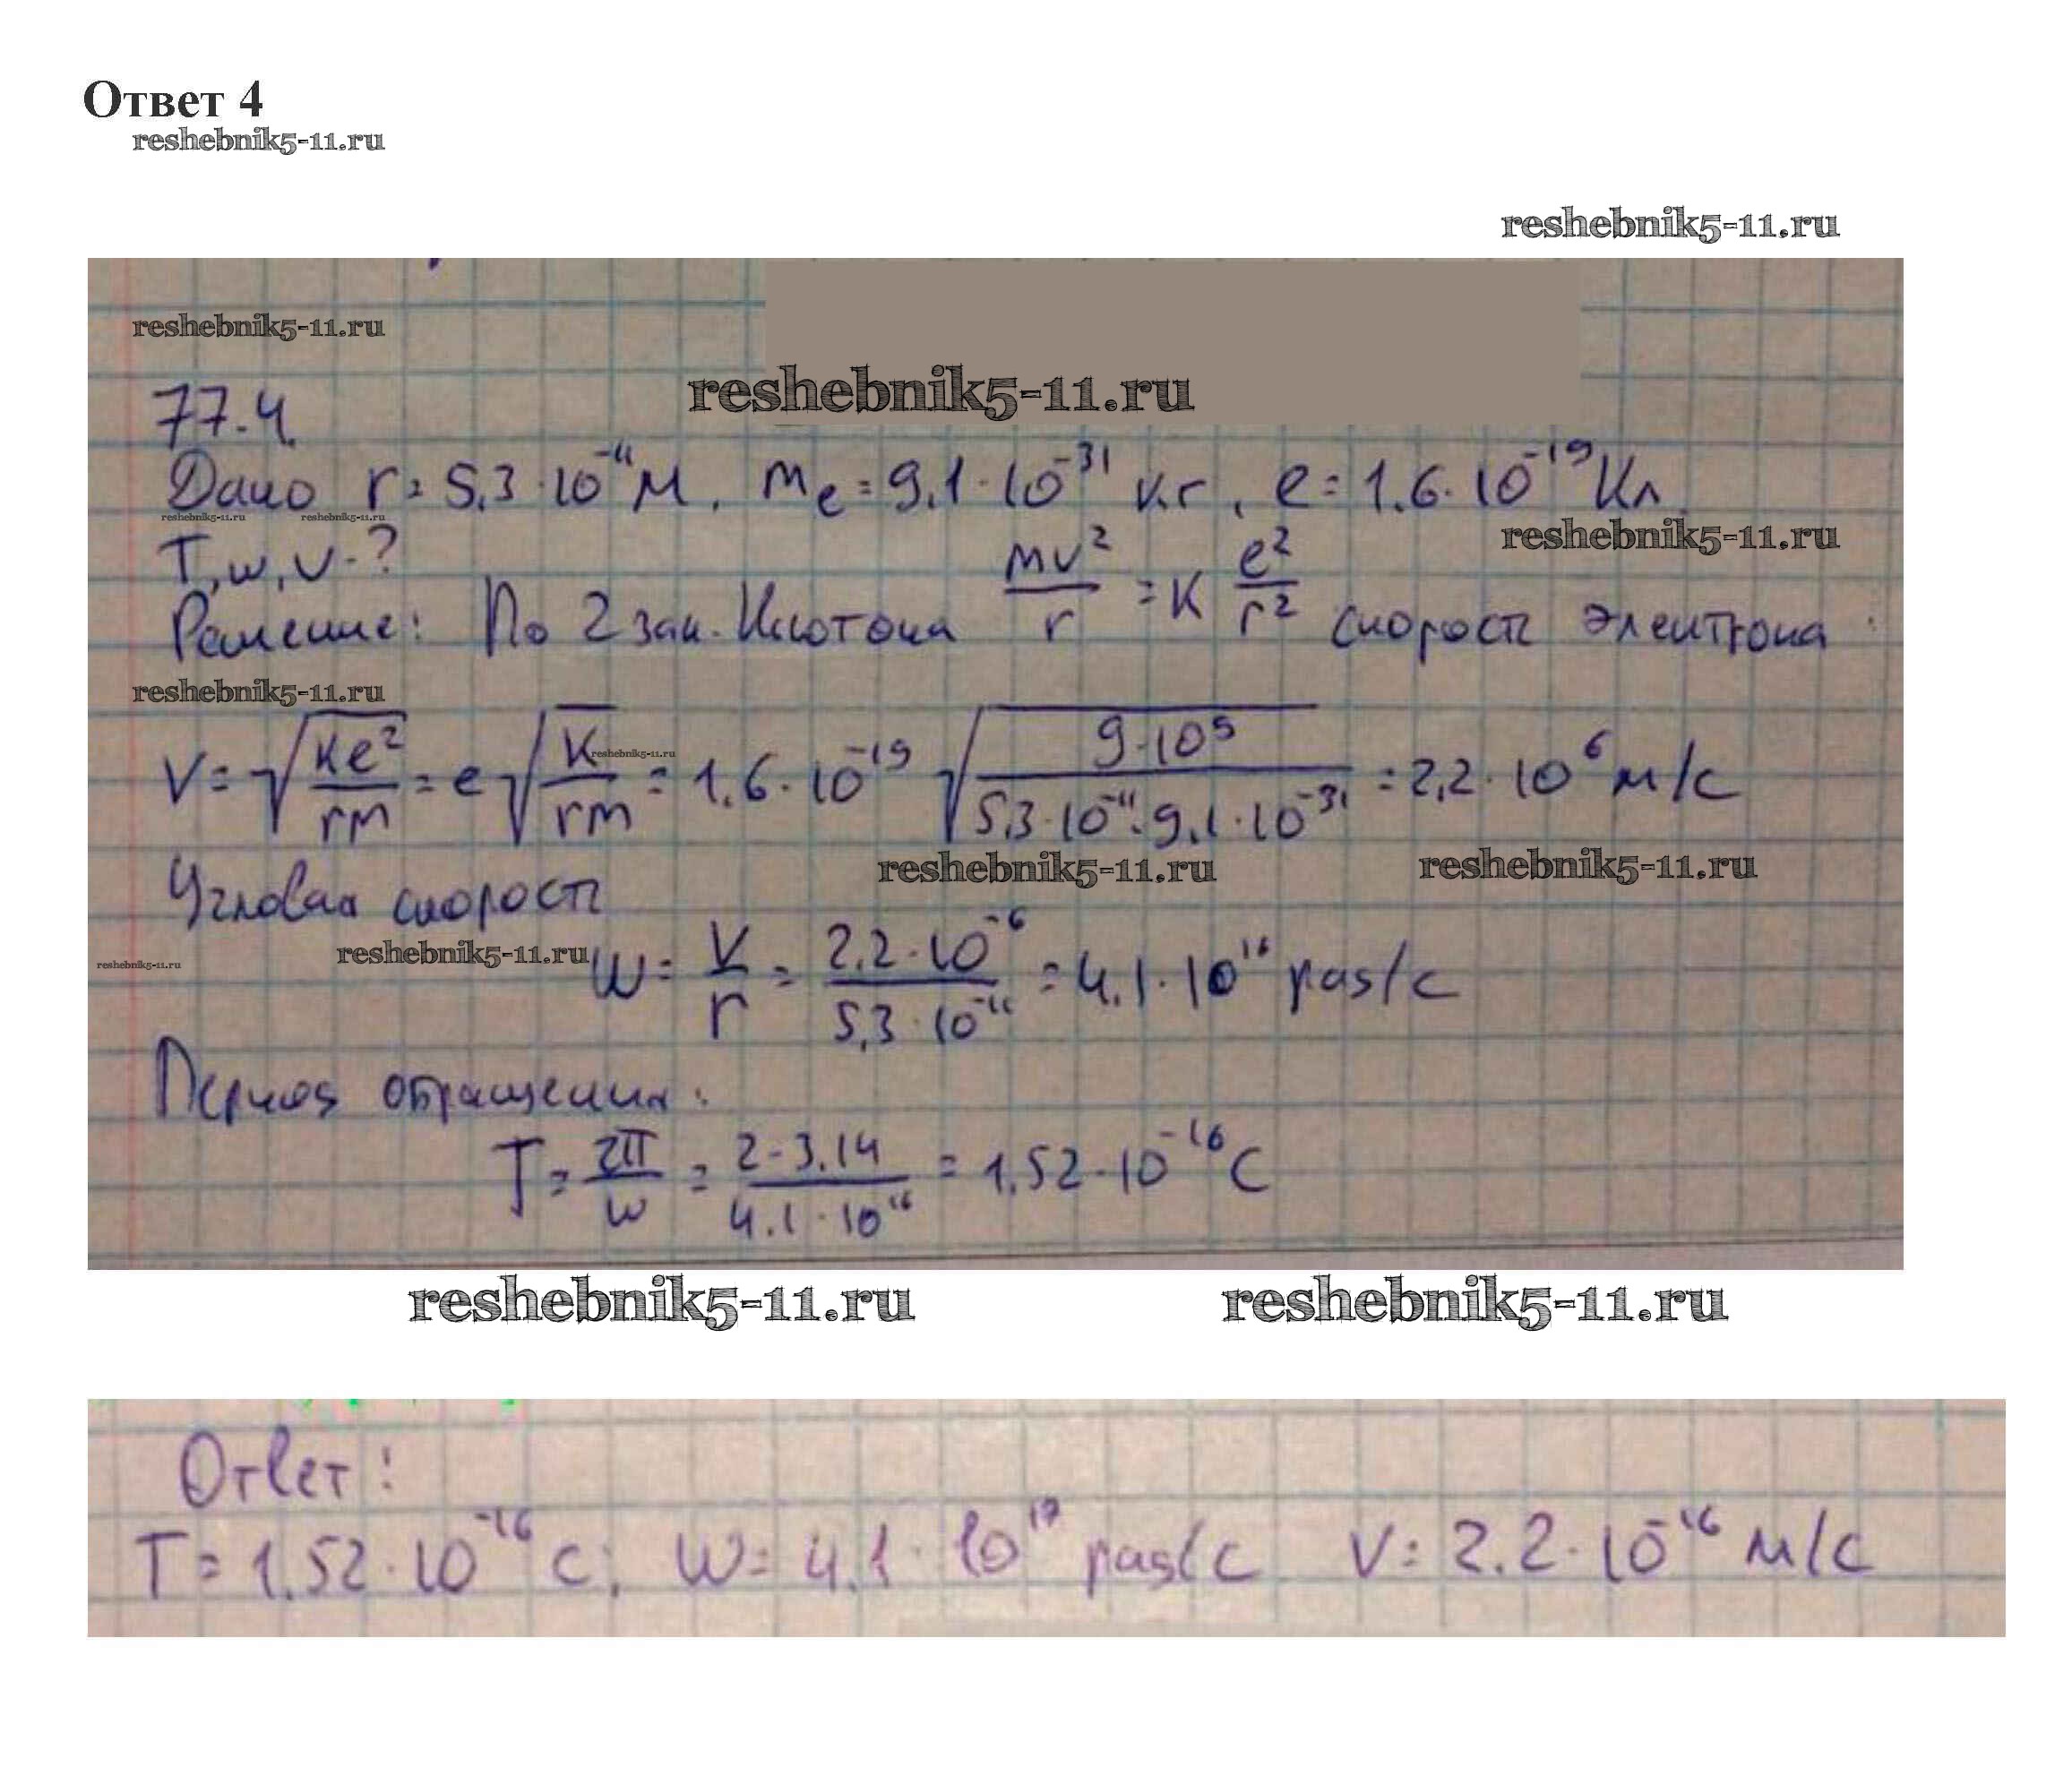 Ответ 4
reshebnik5-11.ru
reshebnik5-11.ru
reshebnik5-11.ru
reshebnik5-11.ru
77.4.
Дано r = 5,3 · 10⁻¹¹ м, mₑ = 9,1 · 10⁻³¹ кг, e = 1,6 · 10⁻¹⁹ Кл
reshebnik5-11.ru reshebnik5-11.ru
reshebnik5-11.ru
T, w, v - ?
Решение: По 2 зак. Ньютона mv²/r = k e²/r² скорость электрона:
reshebnik5-11.ru
V = √(ke²/rm) = e√(k/rm) = 1,6 · 10⁻¹⁹ √(9·10⁹/(5,3·10⁻¹¹·9,1·10⁻³¹)) = 2,2 · 10⁶ м/с
reshebnik5-11.ru
reshebnik5-11.ru reshebnik5-11.ru
Угловая скорость
reshebnik5-11.ru reshebnik5-11.ru
w = v/r = 2,2·10⁻⁶/5,3·10⁻¹¹ = 4,1 · 10¹⁶ рад/с
Период обращения:
T = 2π/w = 2·3,14/4,1·10¹⁶ = 1,52 · 10⁻¹⁶ с
reshebnik5-11.ru reshebnik5-11.ru
Ответ:
T = 1,52 · 10⁻¹⁶ с; w = 4,1 · 10¹⁷ рад/с V = 2,2 · 10⁻¹⁶ м/с